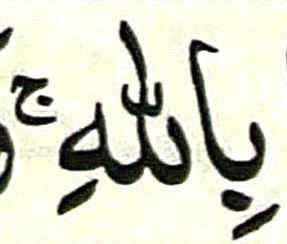 بِاللّٰهِ ۚ